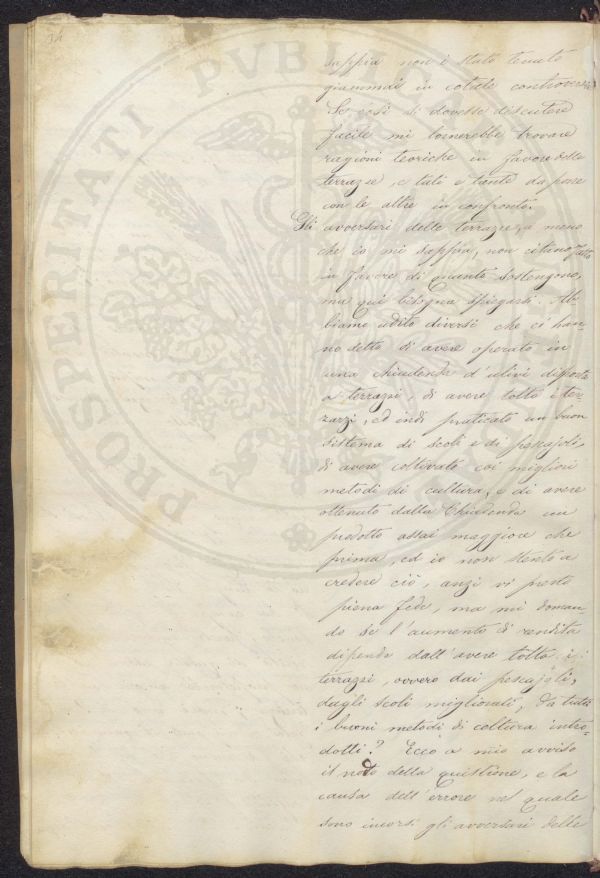 34
sappia non è stato tenuto
giammai in cotale controversia
Se così si dovesse discutere
facile mi tornerebbe trovare
ragioni teoriche in favore delle
terrazze, e tali e tante da porre
con le altre in confronto.
Gli avversari delle terrazze, a meno
che io mi sappia, non citino fatti
in favore di quanto sostengono,
ma qui bisogna spiegarsi. Ab-
biamo udito diversi che ci han-
no detto di avere operato in
una chiudenda d'ulivi disposta
a terrazzi, di avere tolto i ter-
razzi, ed indi praticato un buon
sistema di scoli e di pescajoli
di avere coltivato coi migliori
metodi di cultura, e di avere
ottenuto dalla Chiudenda un
prodotto assai maggiore che
prima, ed io non stento a
credere ciò, anzi vi presto
piena fede, ma mi doman-
do se l'aumento di rendita
dipenda dall'avere tolto i
terrazzi, ovvero dai pescajoli,
dagli scoli migliorati, da tutti
i buoni metodi di coltura intro-
dotti? Ecco a mio avviso
il nodo della quistione, e la
causa dell'errore nel quale
sono incorsi gli avversari delle
PROSPERITATI PVBLICAE